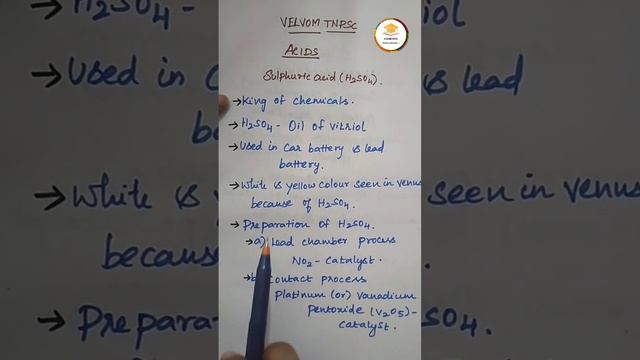 VELVOM TNPSC
ACIDS
Sulphuric acid (H2SO4).
→ King of chemicals.
→ H2SO4 - Oil of vitriol
→ Used in car battery is lead
battery.
→ White is yellow colour seen in venus
because of H2SO4.
→ Preparation of H2SO4.
→ a) Lead chamber process
NO2 - catalyst.
→ b) Contact process
Platinum (or) Vanadium
pentoxide (V2O5) -
catalyst.